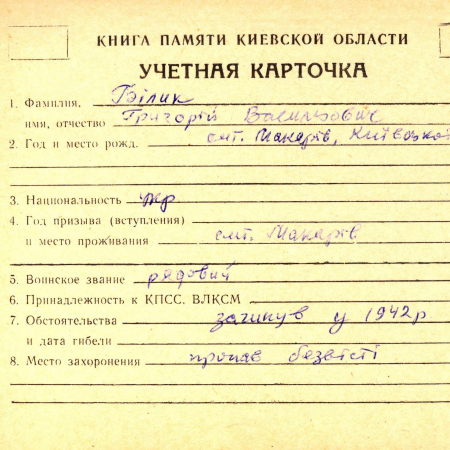 КНИГА ПАМЯТИ КИЕВСКОЙ ОБЛАСТИ
УЧЕТНАЯ КАРТОЧКА
1. Фамилия, Білик
имя, отчество Григорій Васильович
2. Год и место рожд. смт. Макарів, Київської
3. Национальность укр
4. Год призыва (вступления)
и место проживания смт. Макарів
5. Воинское звание рядовий
6. Принадлежность к КПСС. ВЛКСМ
7. Обстоятельства загинув у 1942р
и дата гибели
8. Место захоронения пропав безвісті